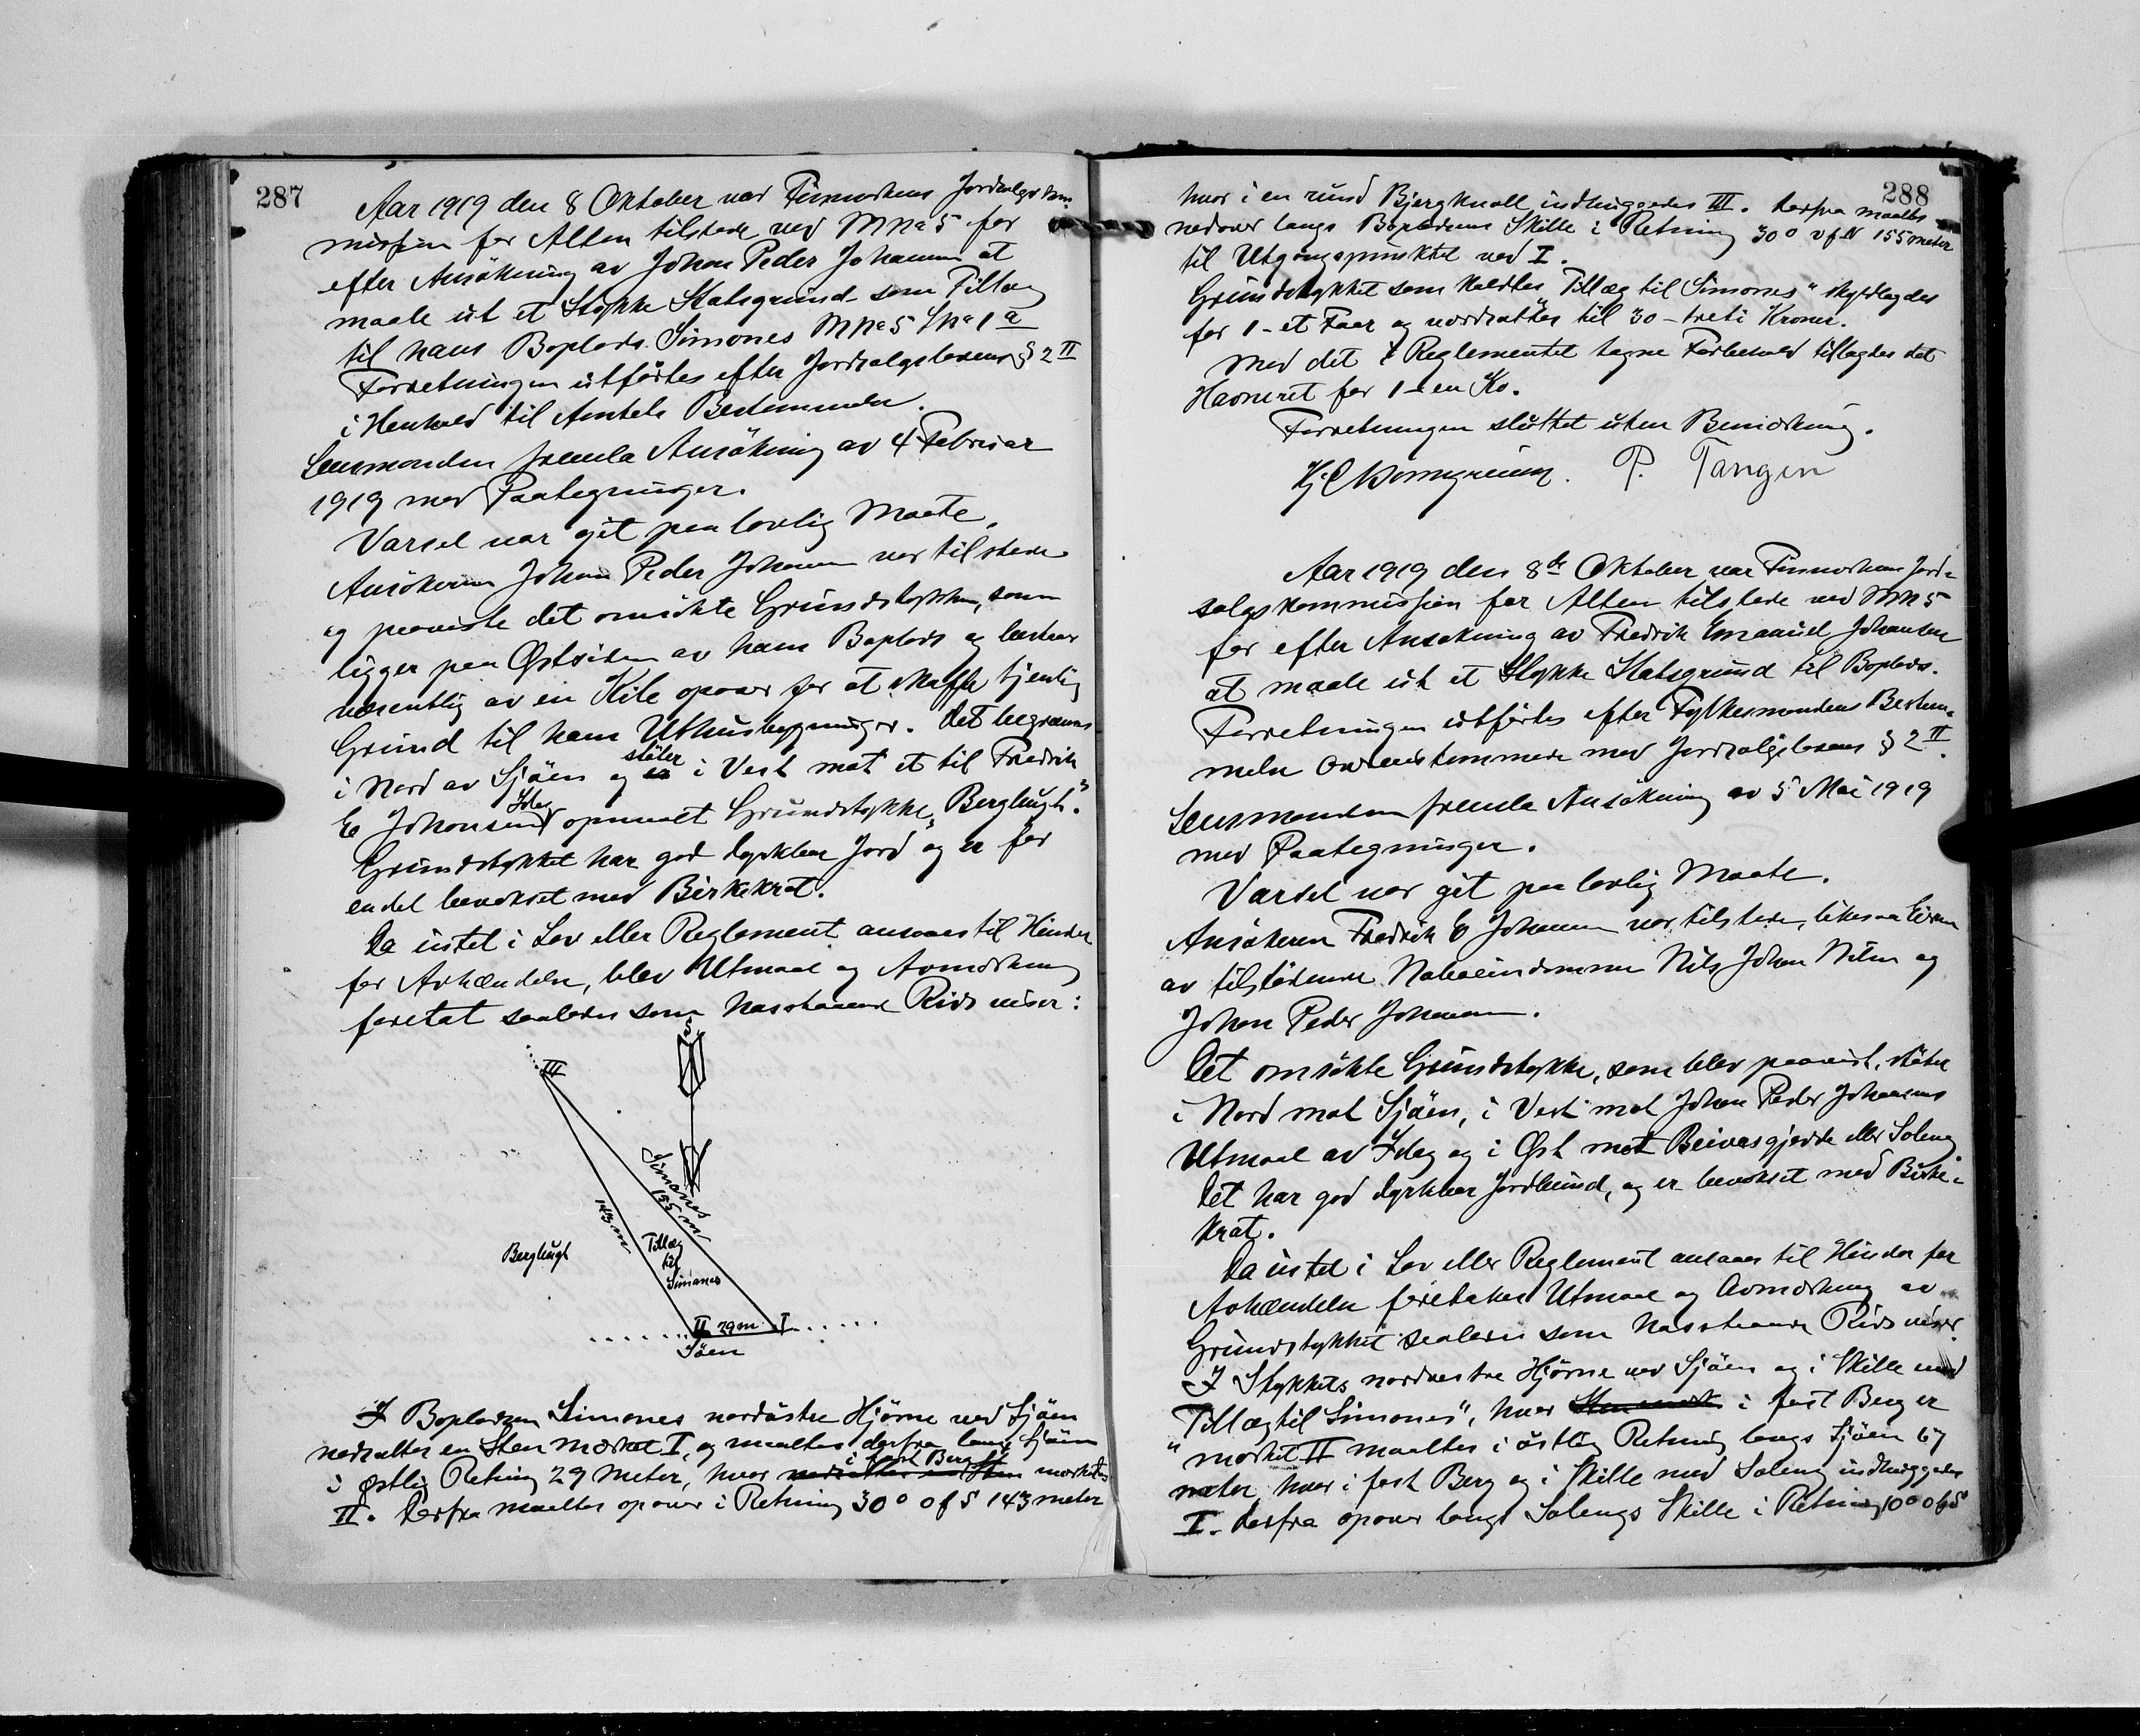 287
Aar 1919 den 8 Oktober var Finmarkens Jordsalgskom-
mission for Alten tilstede ved Mna 5 for
efter Ansøkning av Johan Peder Johansen at
maale ut et Stykke Statsgrund som Tillæg
til hans Boplads Simones Mna 5 Lna 1a
Forretningen utførtes efter Jordsalgslovens § 2 II
i Henhold til Amtets Bestemmelse.
Lensmanden fremla Ansøkning av 4 Februar
1919 med Paategninger.
Varsel var git paa lovlig Maate.
Ansøkeren Johan Peder Johansen var tilstede
og paaviste det omsøkte Grundstykke, som
ligger paa Østsiden av hans Boplads og bestaar
væsentlig av en Kile opover for at skaffe tjenlig
Grund til hans Uthusbygninger. Det begrænses
i Nord av Sjøen og støter i Vest mot et til Fredrik
E Johansen Idag opmaalt Grundstykke "Berglugt".
Grundstykket har god dyrkbar Jord og er for
en del bevokset med Birkekrat.
Da intet i Lov eller Reglement ansaaes til Hinder
for Avhændelse, blev Utmaal og Avmerkning
foretat saaledes som hosstaaende Rids viser:
S
III
Simones
155 m
143 m
Berglugt
Tillæg
til
Simones
II 29 m I
Söen
I Bopladsen Simones nordøstre Hjørne ved Sjøen
nedsattes en Sten mærket I, og maaltes derfra langs Sjøen
i østlig Retning 29 Meter, hvor i fast Berg merkedes
II. Derfra maaltes opover i Retning 30° o f S 143 meter
288
hvor i en rund Bjergknoll indhuggedes III. Derfra maaltes
nedover langs Bopladsens Skille i Retning 30° v f N 155 meter
til Utgangspunktet ved I.
Grundstykket som kaldtes "Tillæg til Simones" skyldlagdes
for 1 - et Øre og værdsattes til 30 - treti Kroner.
Med det i Reglementet tagne Forbehold tillagdes det
Havneret for 1 - en Ko.
Forretningen sluttet uten Bemerkning.
P. Tangen
Aar 1919 den 8de Oktober var Finmarkens Jord-
salgskommission for Alten tilstede ved Mn 5
for efter Ansøkning av Fredrik Emanuel Johansen
at maale ut et Stykke Statsgrund til Boplads.
Forretningen utførtes efter Fylkesmandens Bestem-
melse overensstemmende med Jordsalgslovens § 2 II.
Lensmanden fremla Ansøkning av 5 Mai 1919
med Paategninger.
Varsel var git paa lovlig Maate.
Ansøkeren Fredrik E Johansen var tilstede, likesaa Eierne
av tilstødende Naboeiendomme Nils Johan Nilsen og
Johan Peder Johansen.
Det omsøkte Grundstykke, som blev paavist, støter
i Nord mot Sjøen, i Vest mot Johan Peder Johansens
Utmaal av Idag og i Øst mot Beivasgjedde eller Soleng
Det har god dyrkbar Jordbund, og er bevokset med Birke-
krat.
Da intet i Lov eller Reglement ansaaes til Hinder for
Avhændelse foretokes Utmaal og Avmerkning av
Grundstykket saaledes som hosstaaende Rids viser.
I Stykkets nordvestre Hjørne ved Sjøen og i Skille med
"Tillæg til Simones", hvor i fast Berg er
merket II maaltes i østlig Retning langs Sjøen 67
meter, hvor i fast Berg og i Skille med Soleng indhuggedes
I. Derfra opover langs Solengs Skille i Retning 10° o f S